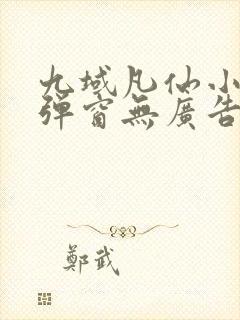 九域凡仙小
彈窗無廣告
鄭武